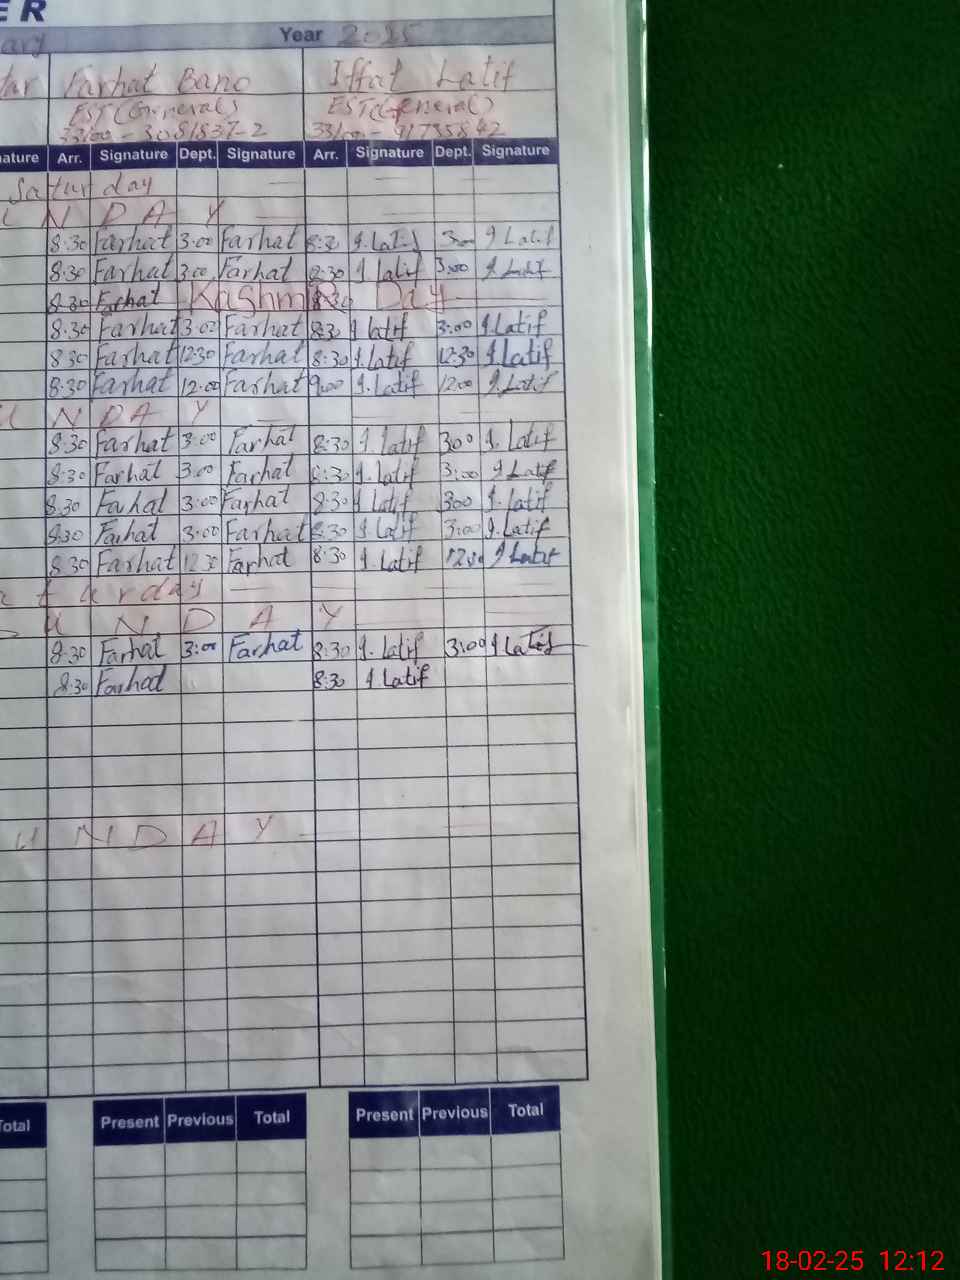 ER
ary Year 2025
tar Farhat Bano Iffat Latif
EST(General) EST(General)
nature Arr. Signature Dept. Signature Arr. Signature Dept. Signature
Saturday
U N D A Y
8:30 Farhat 3:00 Farhat 8:30 I. Latif 3:00 I Latif
8:30 Farhat 3:00 Farhat 8:30 I. Latif 3:00 I. Latif
8:30 Farhat Kashmir 8:30 Day
8:30 Farhat 3:00 Farhat 8:30 I. Latif 3:00 I. Latif
8:30 Farhat 12:30 Farhat 8:30 I. Latif 12:30 I. Latif
8:30 Farhat 12:00 Farhat 9:00 I. Latif 12:00 I. Latif
U N D A Y
8:30 Farhat 3:00 Farhat 8:30 I. Latif 3:00 I. Latif
8:30 Farhat 3:00 Farhat 8:30 I. Latif 3:00 I Latif
8:30 Farhat 3:00 Farhat 8:30 I Latif 3:00 I. Latif
8:30 Farhat 3:00 Farhat 8:30 I. Latif 3:00 I. Latif
8:30 Farhat 12:30 Farhat 8:30 I. Latif I Latif
a t u r d a y
S U N D A Y
8:30 Farhat 3:00 Farhat 8:30 I. Latif 3:00 I Latif
8:30 Farhat 8:30 I Latif
U N D A Y
Total Present Previous Total Present Previous Total
18-02-25 12:12